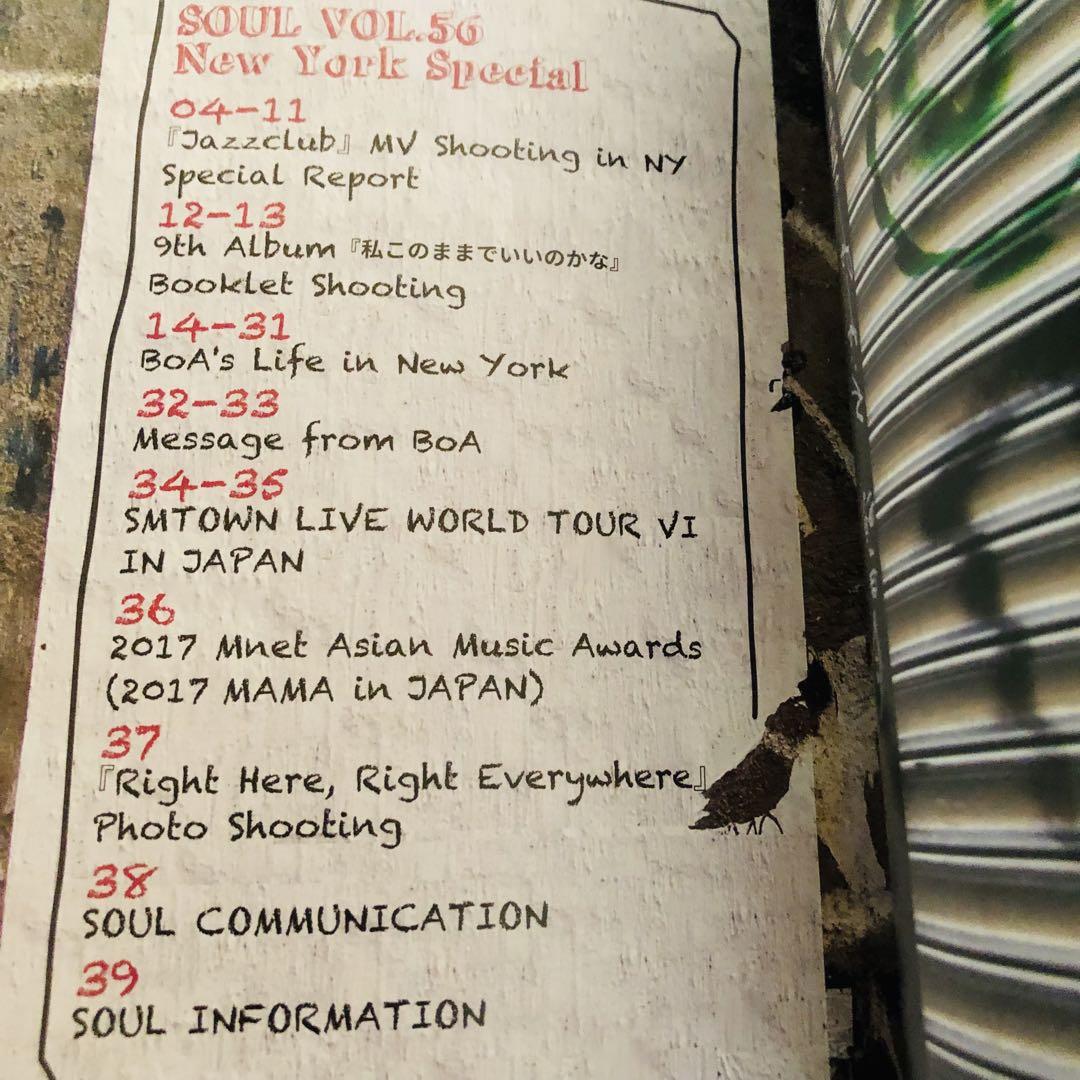 SOUL VOL.56
New York Special
04-11
『Jazzclub』 MV Shooting in NY
Special Report
12-13
9th Album 『私このままでいいのかな』
Booklet Shooting
14-31
BoA's Life in New York
32-33
Message from BoA
34-35
SMTOWN LIVE WORLD TOUR VI
IN JAPAN
36
2017 Mnet Asian Music Awards
(2017 MAMA in JAPAN)
37
『Right Here, Right Everywhere』
Photo Shooting
38
SOUL COMMUNICATION
39
SOUL INFORMATION